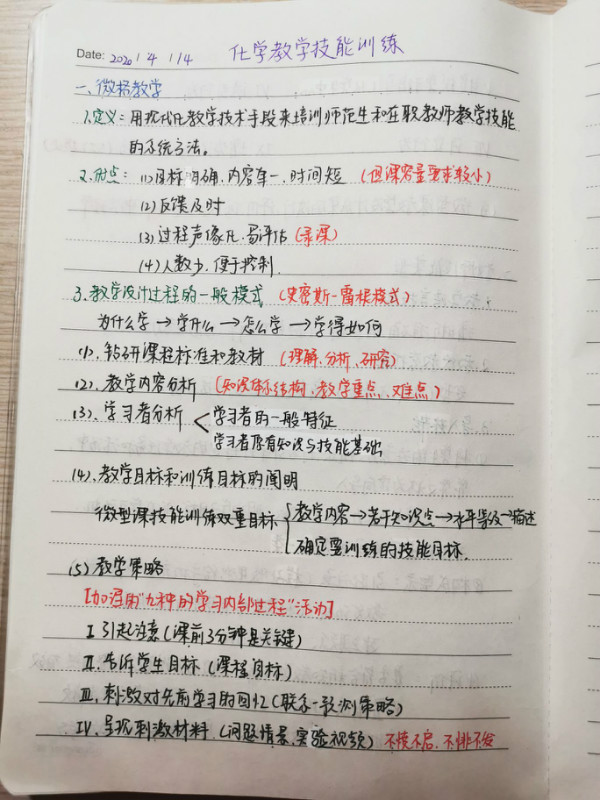 Date: 2020 / 4 / 14 化学教学技能训练
一、微格教学
1.定义：用现代化教学技术手段来培训师范生和在职教师教学技能
的系统方法。
2.特点：(1)目标明确、内容单一、时间短 (但课容量要求较小)
(2)反馈及时
(3)过程声像化、易评估(录课)
(4)人数少、便于控制.
3.教学设计过程的一般模式 (史密斯-雷根模式)
为什么学→学什么→怎么学→学得如何
(1).钻研课程标准和教材 (理解、分析、研究)
(2).教学内容分析 (知识体系结构、教学重点、难点)
(3).学习者分析 < 学习者的一般特征
学习者原有知识与技能基础
(4).教学目标和训练目标的阐明
微型课技能训练双重目标 { 教学内容→若干知识点→水平等级→描述
确定要训练的技能目标.
(5)教学策略
[加涅用"九种的学习内部过程"活动]
I 引起注意(课前3分钟是关键)
II.告诉学生目标(课程目标)
III.刺激对先前学习的回忆(联系-预测策略)
IV.呈现刺激材料.(问题情景、实验视频) 不愤不启、不悱不发